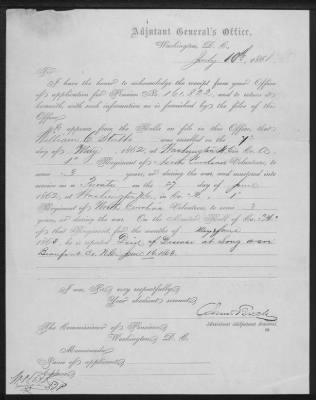 Adjutant General's Office,
Washington, D. C.,
July 10th, 1868
Sir:
I have the honor to acknowledge the receipt from your Office
of application for Pension No. 161,822, and to return it
herewith, with such information as is furnished by the files of this
Office.
It appears from the Rolls on file in this Office, that
William C. was enrolled on the
day of May, 1862, at Washington N.C. in Co. A,
1st Regiment of North Carolina Volunteers, to
serve 3 years, or during the war, and mustered into
service as a Private on the 27 day of June,
1862, at Washington N.C., in Co. A, 1st
Regiment of North Carolina Volunteers, to serve 3
years, or during the war. On the Muster Roll of Co. "A"
of that Regiment, for the months of May & June,
1863, he is reported Died of Disease at
Beaufort Co. N.C. June 16, 1863.
I am, Sir, very respectfully,
Your obedient servant,
Assistant Adjutant General.
The Commissioner of Pensions,
Washington, D. C.
Memoranda:
Name of applicant,
Address,